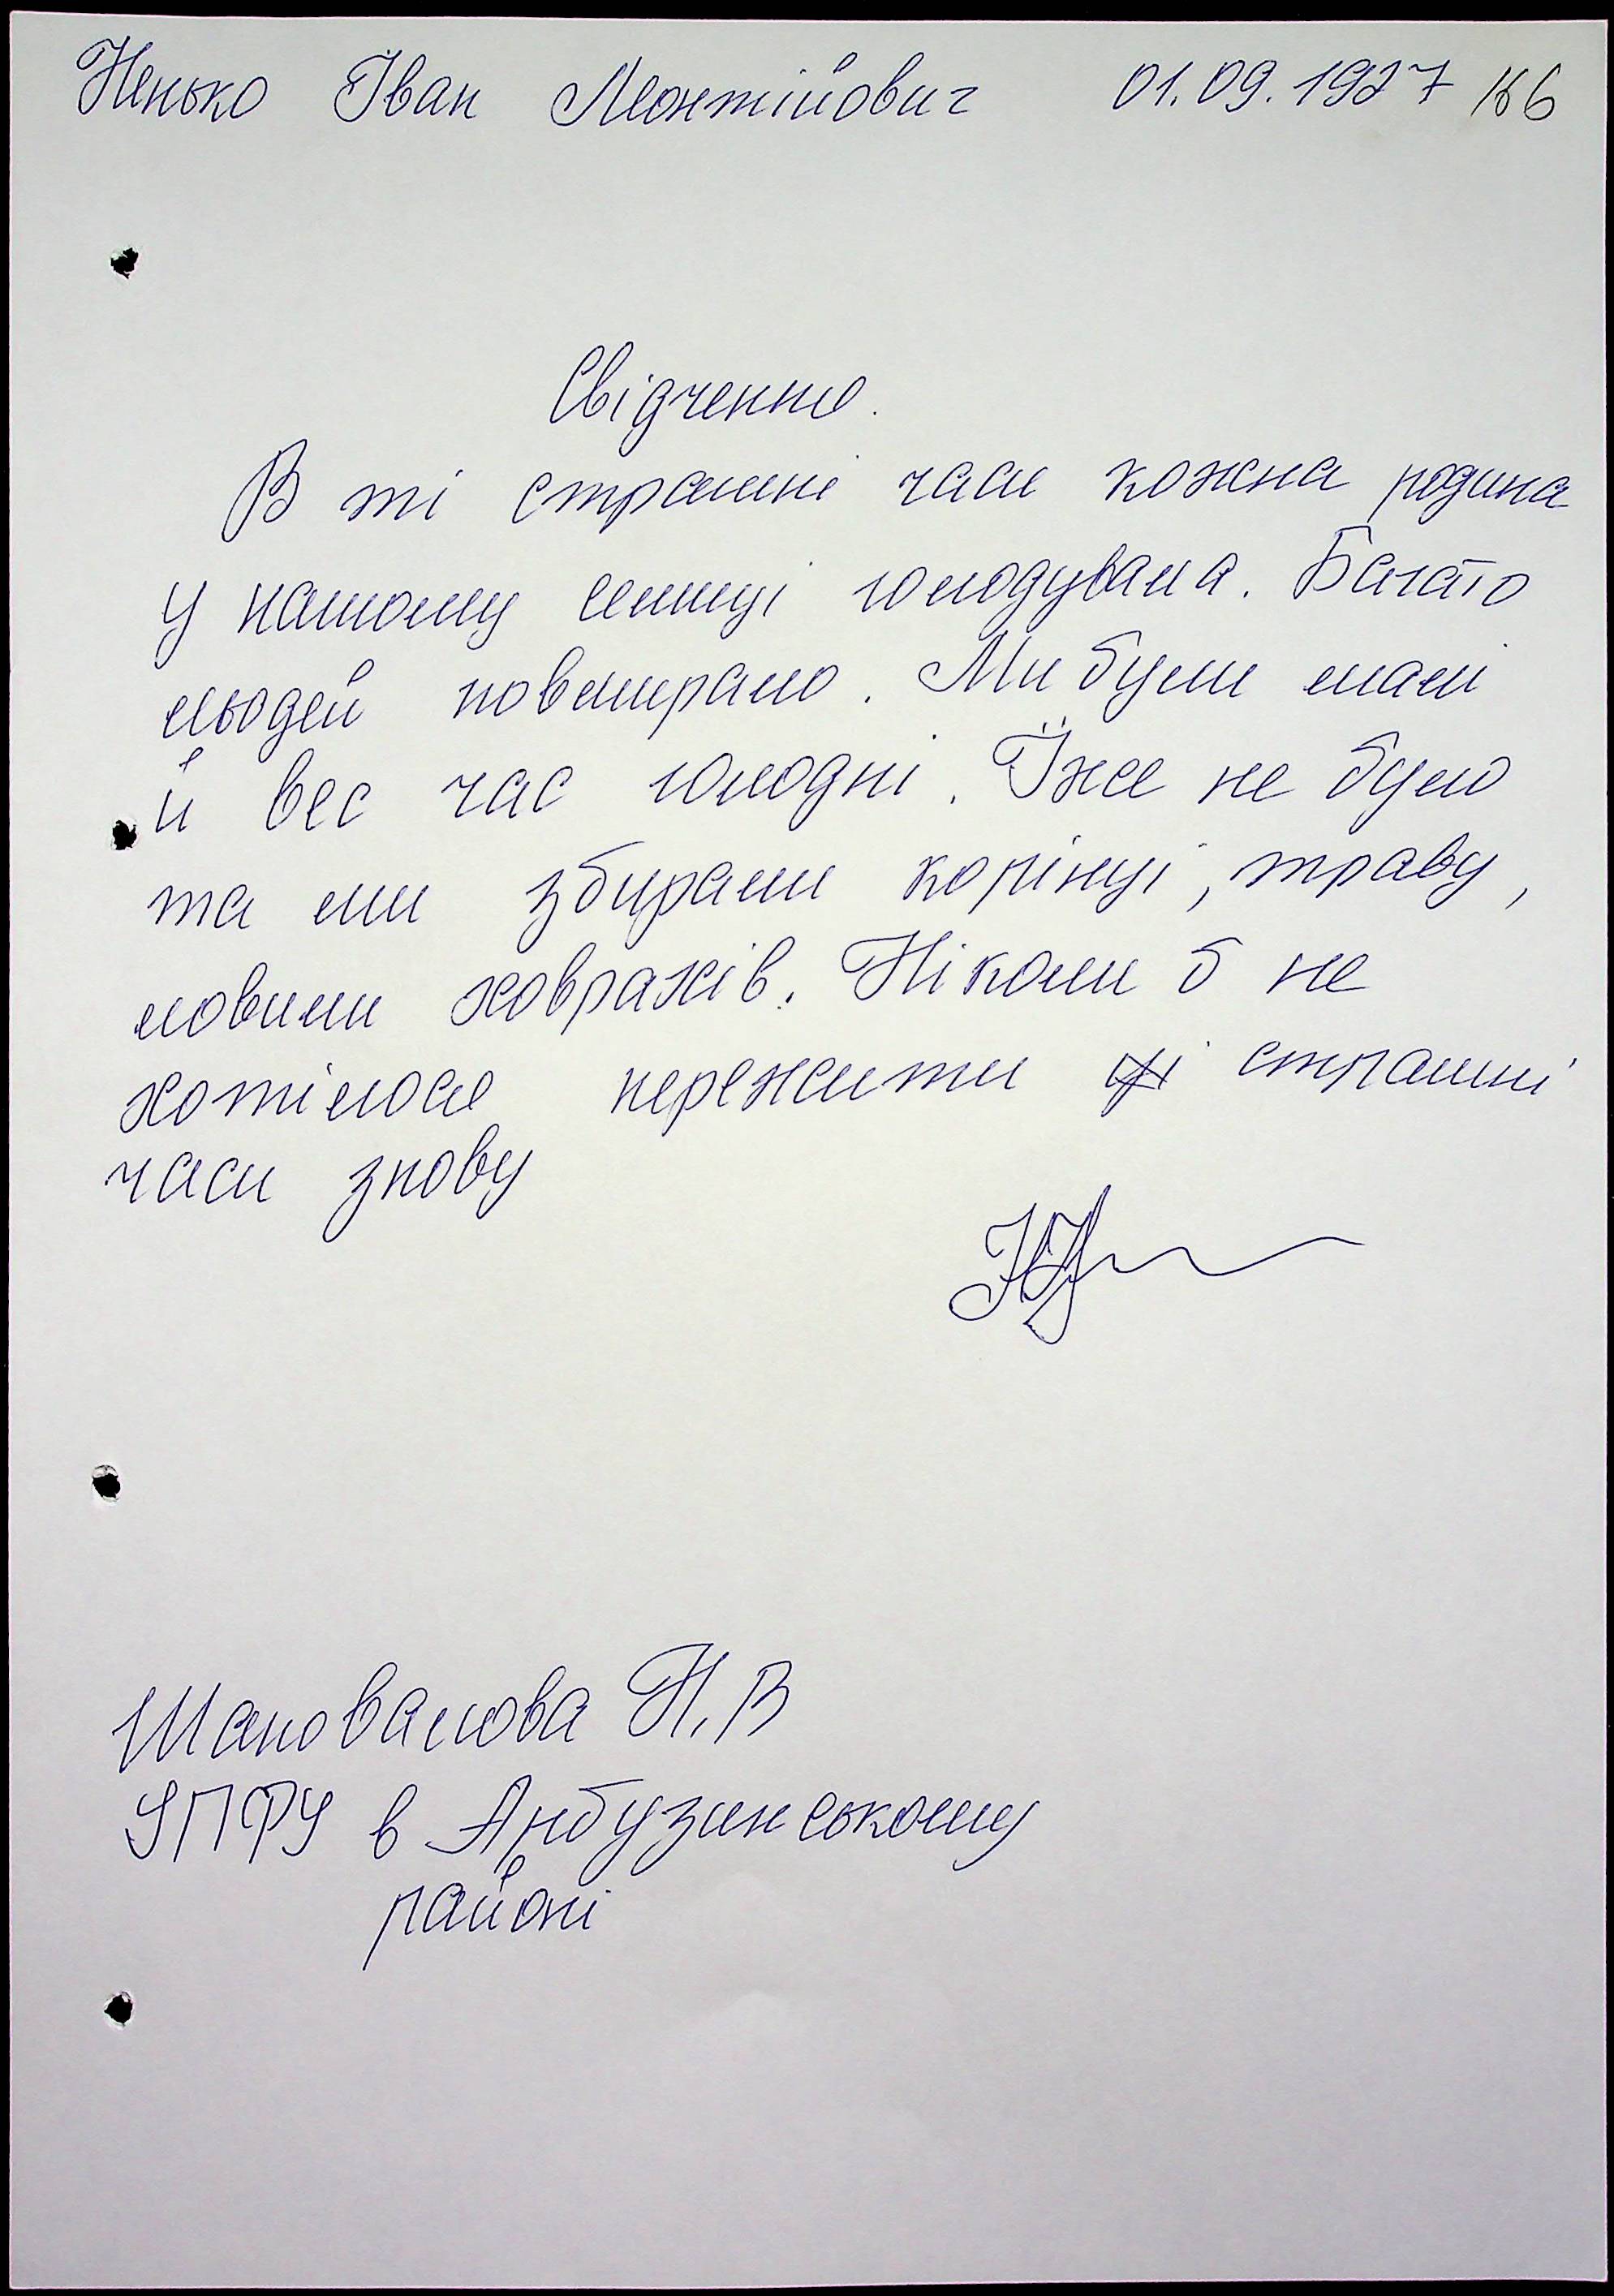 Ненько Іван Леонтійович 01.09.1927 166
Свідчення.
В ті страшні часи кожна родина
у нашому селищі голодувала. Багато
людей повмирало. Ми були малі
й вес час голодні. Їжі не було
та ми збирали корінці, траву,
ловили ховрахів. Ніколи б не
хотілося пережити ці страшні
часи знову
Шаповалова Н.В
УПФУ в Арбузинському
районі